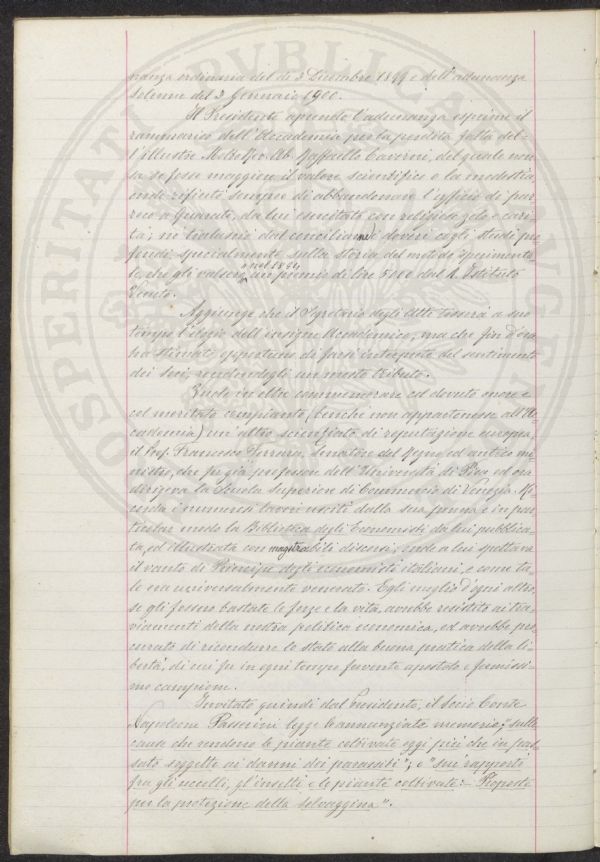 nanza ordinaria del dì 3 Dicembre 1899 e dell'adunanza
solenne del 2 Gennaio 1900.
Il Presidente aprendo l'adunanza esprime il
rammarico dell'Accademia per la perdita fatta del-
l'Illustre Molto Rev. Ab. Raffaello Caverni, del quale non
sa se fosse maggiore il valore scientifico o la modestia,
onde rifiutò sempre di abbandonare l'ufficio di par
roco a Quarate, da lui esercitato con religioso zelo e cari-
tà, nè tralasciò dal conciliarne i doveri cogli studi pro
fondi, specialmente sulla storia del metodo sperimenta
le, che gli valsero nel 1894 un premio di lire 5000 dal R. Istituto
Veneto.
Aggiunge che il Segretario degli Atti tesserà a suo
tempo l'elogio dell'insigne Accademico, ma che fin d'ora
ha stimato opportuno di farsi interprete del sentimento
dei Soci, rendendogli un mesto tributo.
Vuole inoltre commemorare col dovuto onore e
col meritato compianto, (benchè non appartenesse all'Ac
cademia) un'altro scienziato di reputazione europea,
il Prof. Francesco Ferrara, Senatore del Regno ed antico mi
nistro, che fu già professore dell'Università di Pisa ed ora
dirigeva la Scuola Superiore di Commercio di Venezia. Ri-
corda i numerosi lavori usciti dalla sua penna e in par
ticolar modo la Biblioteca degli Economisti da lui pubblica-
ta, ed illustrata con magistrabili discorsi, onde a lui spettava
il vanto di Principe degli economisti italiani, e come ta
le era universalmente venerato. Egli meglio d'ogni altro,
se gli fossero bastate le forze e la vita, avrebbe resistito ai tra
viamenti della nostra politica economica, ed avrebbe pro
curato di ricondurre lo stato alla buona pratica della li-
bertà, di cui fu in ogni tempo fervente apostolo e fermissi-
mo campione.
Invitato quindi dal Presidente, il Socio Conte
Napoleone Passerini legge le annunziate memorie, "sulle
cause che rendono le piante coltivate oggi più che in pas
sato soggette ai danni dei parassiti"; e "sui rapporti
fra gli uccelli, gl'insetti e le piante coltivate: - Proposte
per la protezione della selvaggina".